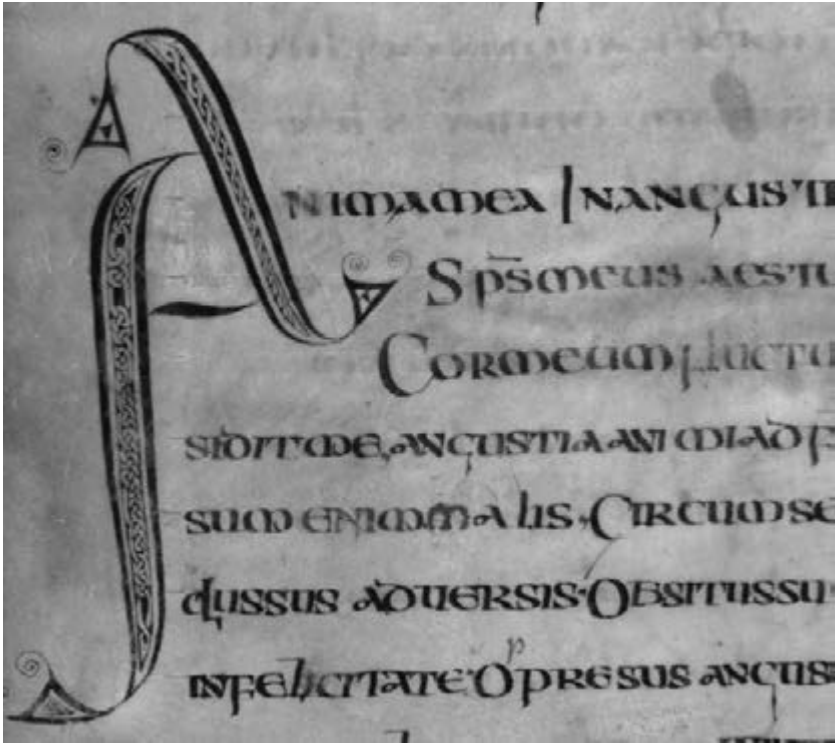 ANIMA MEA IN ANGUSTI
Sp̄s MEUS AESTU
COR MEUM FLUCTU
SIDIT ME, ANGUSTIA ANIMI AD F
SUM ENIM MALIS, CIRCUMSE
QUSSUS ADUERSIS· OBSITUS SU
INFELICITATE· OPpRESUS ANGUS